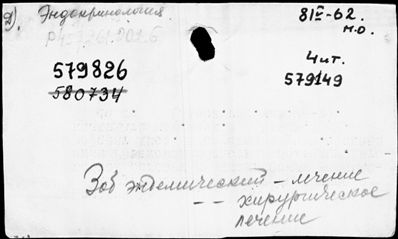 Д). Эндокринология
81<sup>II</sup>-62.
м.о.
579826
580734
4 чит.
579149
Зоб эндемический – лечение
– – хирургическое
лечение